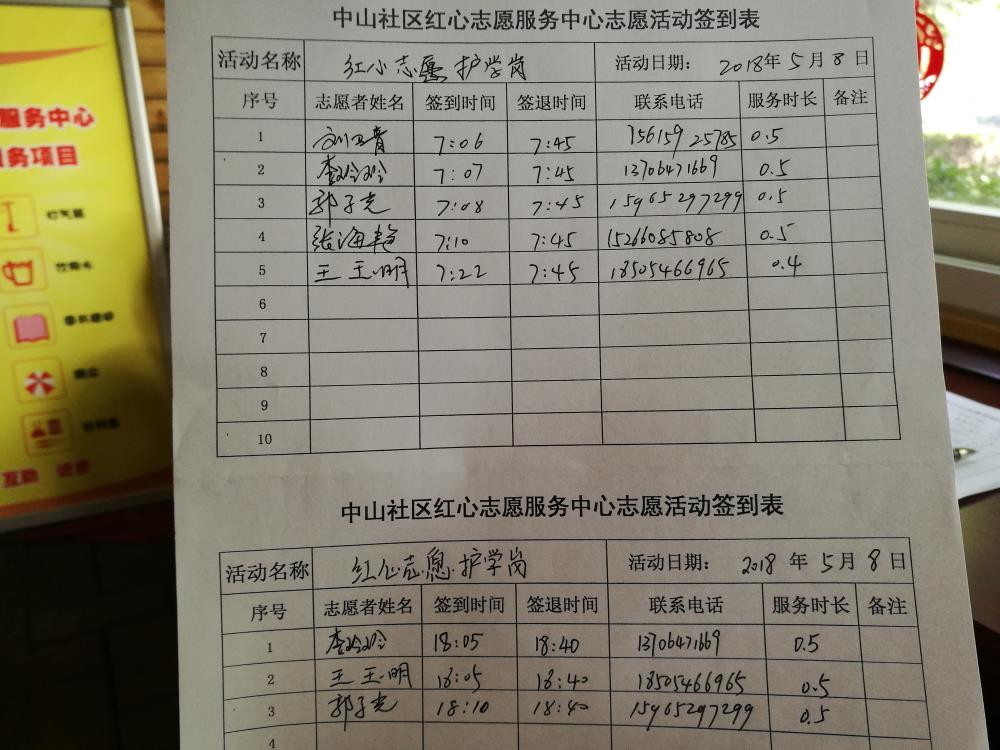 中山社区红心志愿服务中心志愿活动签到表
活动名称 红心志愿护学岗 活动日期: 2018年5月8日
序号 志愿者姓名 签到时间 签退时间 联系电话 服务时长 备注
1 7:06 7:45 15615925785 0.5
2 李玲玲 7:07 7:45 13706471669 0.5
3 郭子光 7:08 7:45 15965297299 0.5
4 张海艳 7:10 7:45 15266085808 0.5
5 王玉明 7:22 7:45 18505466965 0.4
6
7
8
9
10
中山社区红心志愿服务中心志愿活动签到表
活动名称 红心志愿护学岗 活动日期: 2018年5月8日
序号 志愿者姓名 签到时间 签退时间 联系电话 服务时长 备注
1 李玲玲 18:05 18:40 13706471669 0.5
2 王玉明 18:05 18:40 18505466965 0.5
3 郭子光 18:10 18:40 15965297299 0.5
4
服务中心
服务项目
打气筒
互助 进步